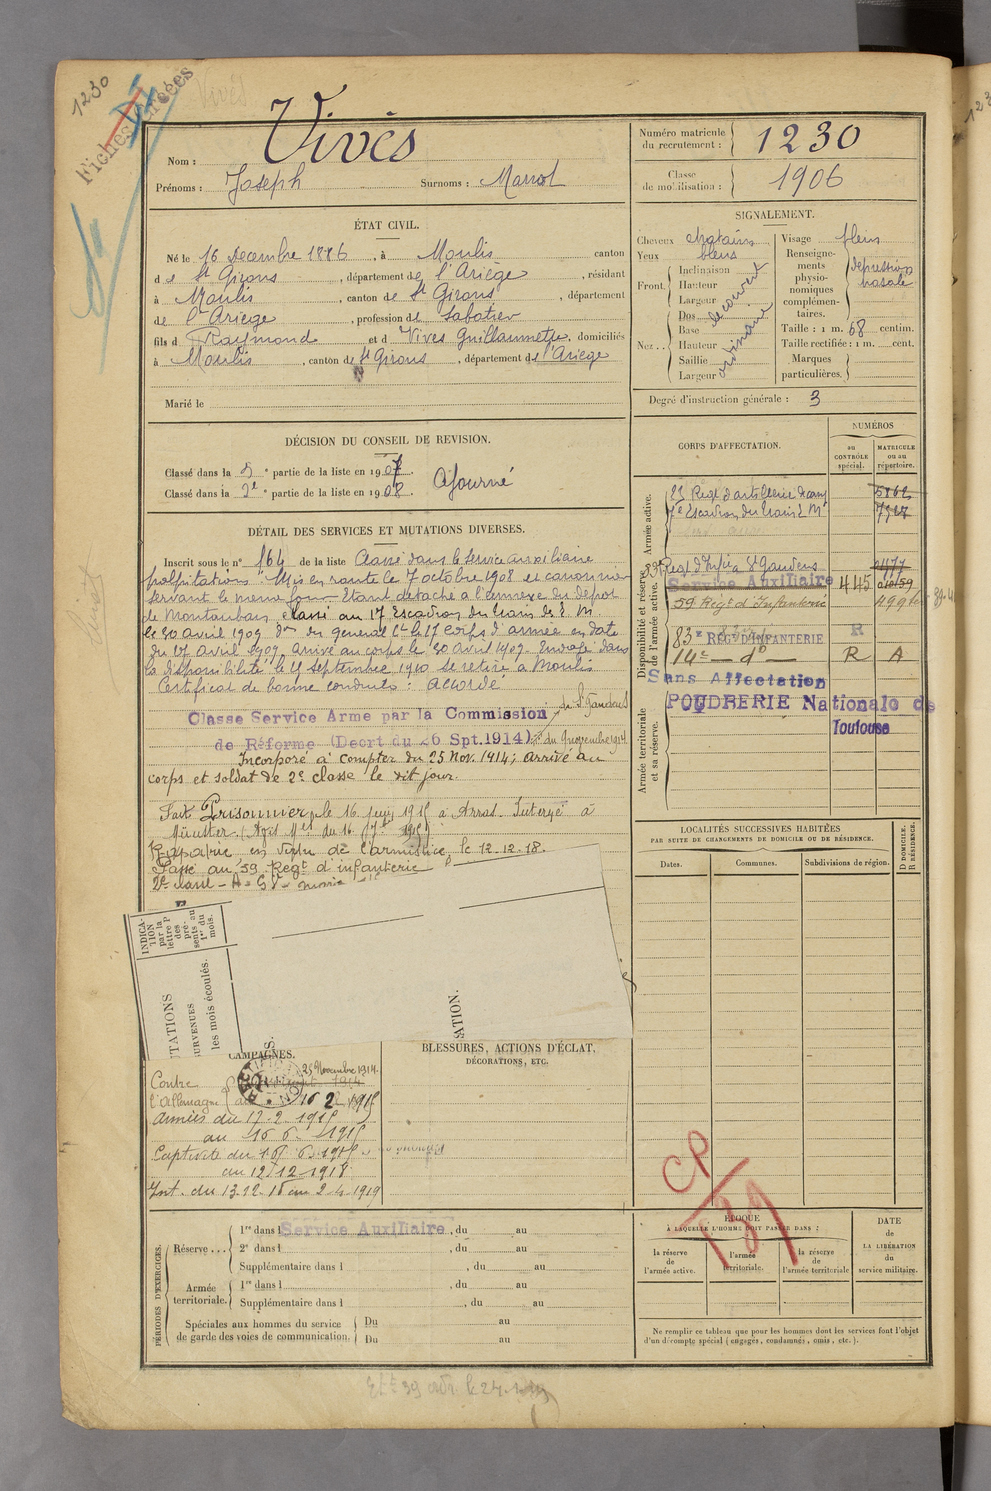 1230
Fichées
Vivès
Nom : Vivès
Prénoms : Joseph Surnoms :
Numéro matricule du recrutement : 1230
Classe de mobilisation : 1906
ÉTAT CIVIL.
Né le 16 Décembre 1886, à Moulis canton
de St Girons, département de l'Ariège, résidant
à Moulis, canton de St Girons, département
de l'Ariège, profession de Sabotier
fils d Raymond et d Vives Guillaumette, domiciliés
à Moulis, canton de St Girons, département de l'Ariège
Marié le
SIGNALEMENT.
Cheveux chatains
Yeux bleus
Front. Inclinaison
Hauteur
Largeur
découvert
Nez... Dos
Base
Hauteur
Saillie
Largeur
ordinaire
Visage plein
Renseignements physionomiques complémentaires. depression nasale
Taille : 1 m. 68 centim.
Taille rectifiée : 1 m. cent.
Marques particulières.
Degré d'instruction générale : 3
DÉCISION DU CONSEIL DE REVISION.
Classé dans la 5 e partie de la liste en 1907.
Classé dans la 2e e partie de la liste en 1908.
Ajourné
DÉTAIL DES SERVICES ET MUTATIONS DIVERSES.
Inscrit sous le n° 164 de la liste Classé dans le service auxiliaire
palpitations. Mis en route le 7 octobre 1908 et canonnier
servant le même jour. Etant détaché à l'annexe du dépot
de Montauban, classé au 17 Escadron du train des E. M
le 30 avril 1909 don du général Ct le 17 Corps d'armée en date
du 17 avril 1909, arrivé au corps le 30 avril 1909. Envoyé dans
la disponibilité le 25 septembre 1910 se retire à Moulis
Certificat de bonne conduite : Accordé
Classe Service Arme par la Commission de St Gaudens
de Réforme (Decrt du 26 Spt. 1914) du 9 novembre 1914
Incorporé à compter du 25 Nov. 1914; arrivé au
corps et soldat de 2e classe le dit jour.
Fait Prisonnier le 16 juin 1915 à Arras. Interné à
Münster (Avis Mel du 16 7bre 1915)
Rapatrié en vertu de l'armistice, le 12.12.18.
Passé au 59 Regt d'infanterie
CORPS D'AFFECTATION.
NUMÉROS
au CONTRÔLE spécial.
MATRICULE ou au répertoire.
Armée active.
23 Regt d'artillerie de camp 5862
17e Escadron du train E. M 7927
Disponibilité et réserve de l'armée active.
Regt d'Infie à St Gaudens 2477
Service Auxiliaire 445
59 Regt d'Infanterie
83e REGt D'INFANTERIE R
14e — do — R A
Sans Affectation
Armée territoriale et sa réserve.
POUDRERIE Nationale de
Toulouse
LOCALITÉS SUCCESSIVES HABITÉES
PAR SUITE DE CHANGEMENTS DE DOMICILE OU DE RÉSIDENCE.
Dates.
Communes.
Subdivisions de région.
D DOMICILE.
R RÉSIDENCE.
INDICATION par la lettre P des présents au 1er du mois.
TATIONS
SURVENUES
les mois écoulés.
ATION.
CAMPAGNES.
Contre l'Allemagne
25 Novembre 1914.
au 16 2 1915
Armées du 17-2-1915
au 16 6 1915
Captivité du 16 6 1915
au 12/12 1918
Int. du 13.12.18 au 2-4-1919
BLESSURES, ACTIONS D'ÉCLAT,
DÉCORATIONS, ETC.
CP
139
PÉRIODES D'EXERCICES.
Réserve...
1re dans l Service Auxiliaire, du au
2e dans l , du au
Supplémentaire dans l , du au
Armée territoriale.
1re dans l , du au
Supplémentaire dans l , du au
Spéciales aux hommes du service de garde des voies de communication.
Du au
Du au
ÉPOQUE
À LAQUELLE L'HOMME DOIT PASSER DANS :
la réserve de l'armée active.
l'armée territoriale.
la réserve de l'armée territoriale
DATE de LA LIBÉRATION du service militaire.
Ne remplir ce tableau que pour les hommes dont les services font l'objet
d'un décompte spécial (engagés, condamnés, omis, etc.).